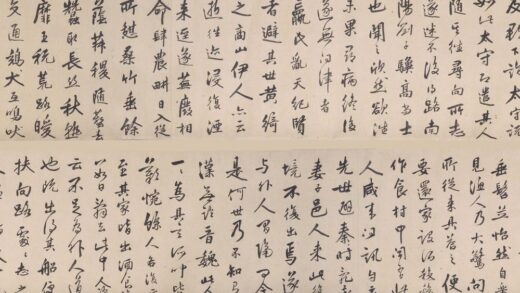 郡下詣太守說
如此太守即遣其人
隨其往尋向所志
遂迷不復得路南
陽劉子驥高尚士
也聞之欣然欲往
未果尋病終後
遂無問津者
嬴氏亂天紀賢
者避其世黃綺
之商山伊人亦云
逝往迹浸復湮
來逕遂蕪廢相
命肆農耕日入從
所憩桑竹垂餘
蔭菽稷隨時藝
蠶收長絲秋熟
靡王稅荒路曖
交通雞犬互鳴吠
垂髫並怡然自樂
見漁人乃大驚問
所從來具答之便
要還家設酒殺雞
作食村中聞有此
人咸來問訊自云
先世避秦時亂率
妻子邑人來此絕
境不復出焉遂
與外人間隔問今
是何世乃不知有
漢無論晉魏此
一一為具言所聞皆
歎惋餘人各復延
至其家皆出酒食
數日辭去此中人語
云不足為外人道
也既出得其船便
扶向路處處志之